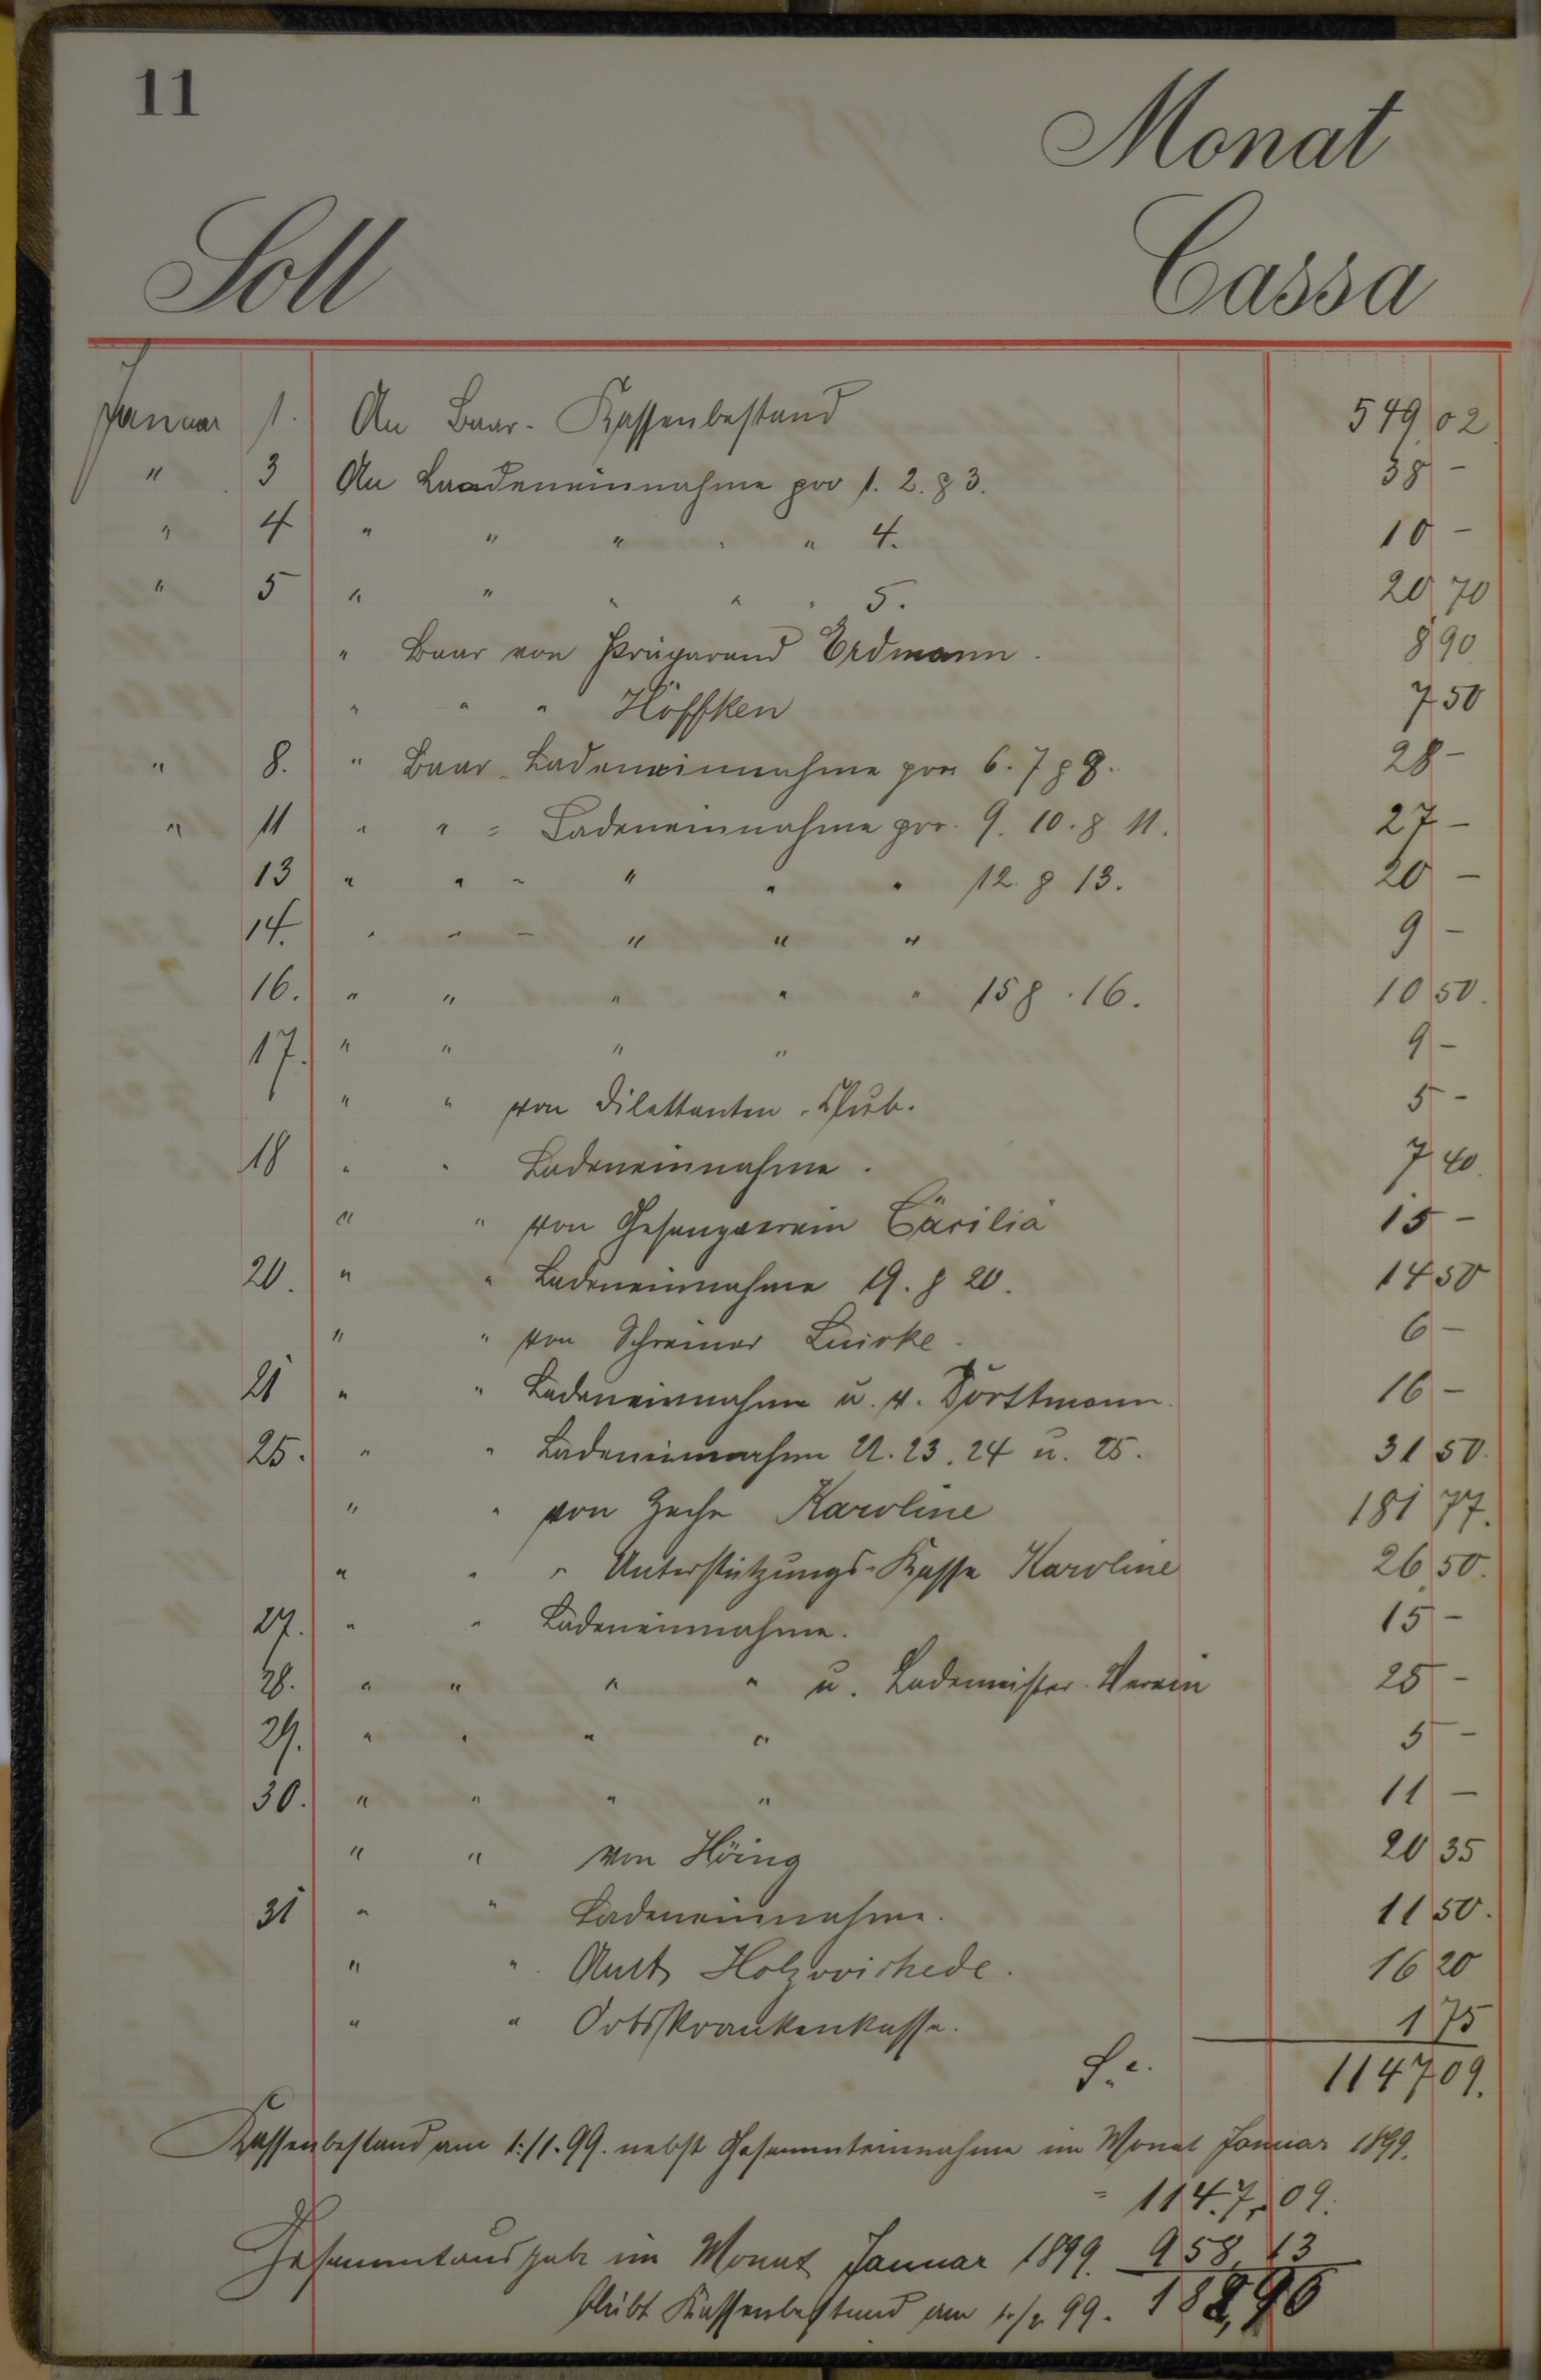 11
Monat
Soll Cassa
Januar 1. An Baar-Kassenbestand 549 02
" 3 An Laadeneinnahme pro 1. 2. & 3. 38 -
" 4 " " " " 4. 10 -
" 5 " " " " " 5. 20 70
" Baar von Präparand Erdmann. 8 90
" " " Höffken 7 50
" 8. " Baar-Ladeneinnahme pro 6. 7 & 8. 28 -
" 11 " " = Ladeneinnahme pro. 9. 10. & 11. 27 -
13 " " - " " " 12. & 13. 20 -
14. " " - " " " 9 -
16. " " " " " 15 & 16. 10 50.
17. " " " " 9 -
" " von Dilettanten-Club. 5 -
18 " " Ladeneinnahme. 7 40.
" " von Gesangverein Cäcilia 15 -
20. " " Ladeneinnahme 19. & 20. 14 50
" " von Schreiner 6 -
21 " " Ladeneinnahme u. v. Dorttmann. 16 -
25. " " Ladeneinnahme 22. 23. 24 u. 25. 31 50.
" " von Zeche Karoline 181 77.
" " " Unterstützungs-Kasse Karoline 26 50.
27. " " Ladeneinnahme. 15 -
28. " " " " u. Lademeister-Verein 25 -
29. " " " " 5 -
30. " " " " 11 -
" " von Höing 20 35
31 " " Ladeneinnahme. 11 50.
" " Amt Holzwickede. 16 20
" " Ortskrankenkasse. 1 75
1147 09.
Kassenbestand am 1./1. 99. nebst Gesammteinnahme im Monat Januar 1899.
= 1147,09.
Gesammtausgabe im Monat Januar 1899. 958,13
bleibt Kassenbestand am 1./2. 99. 188,96